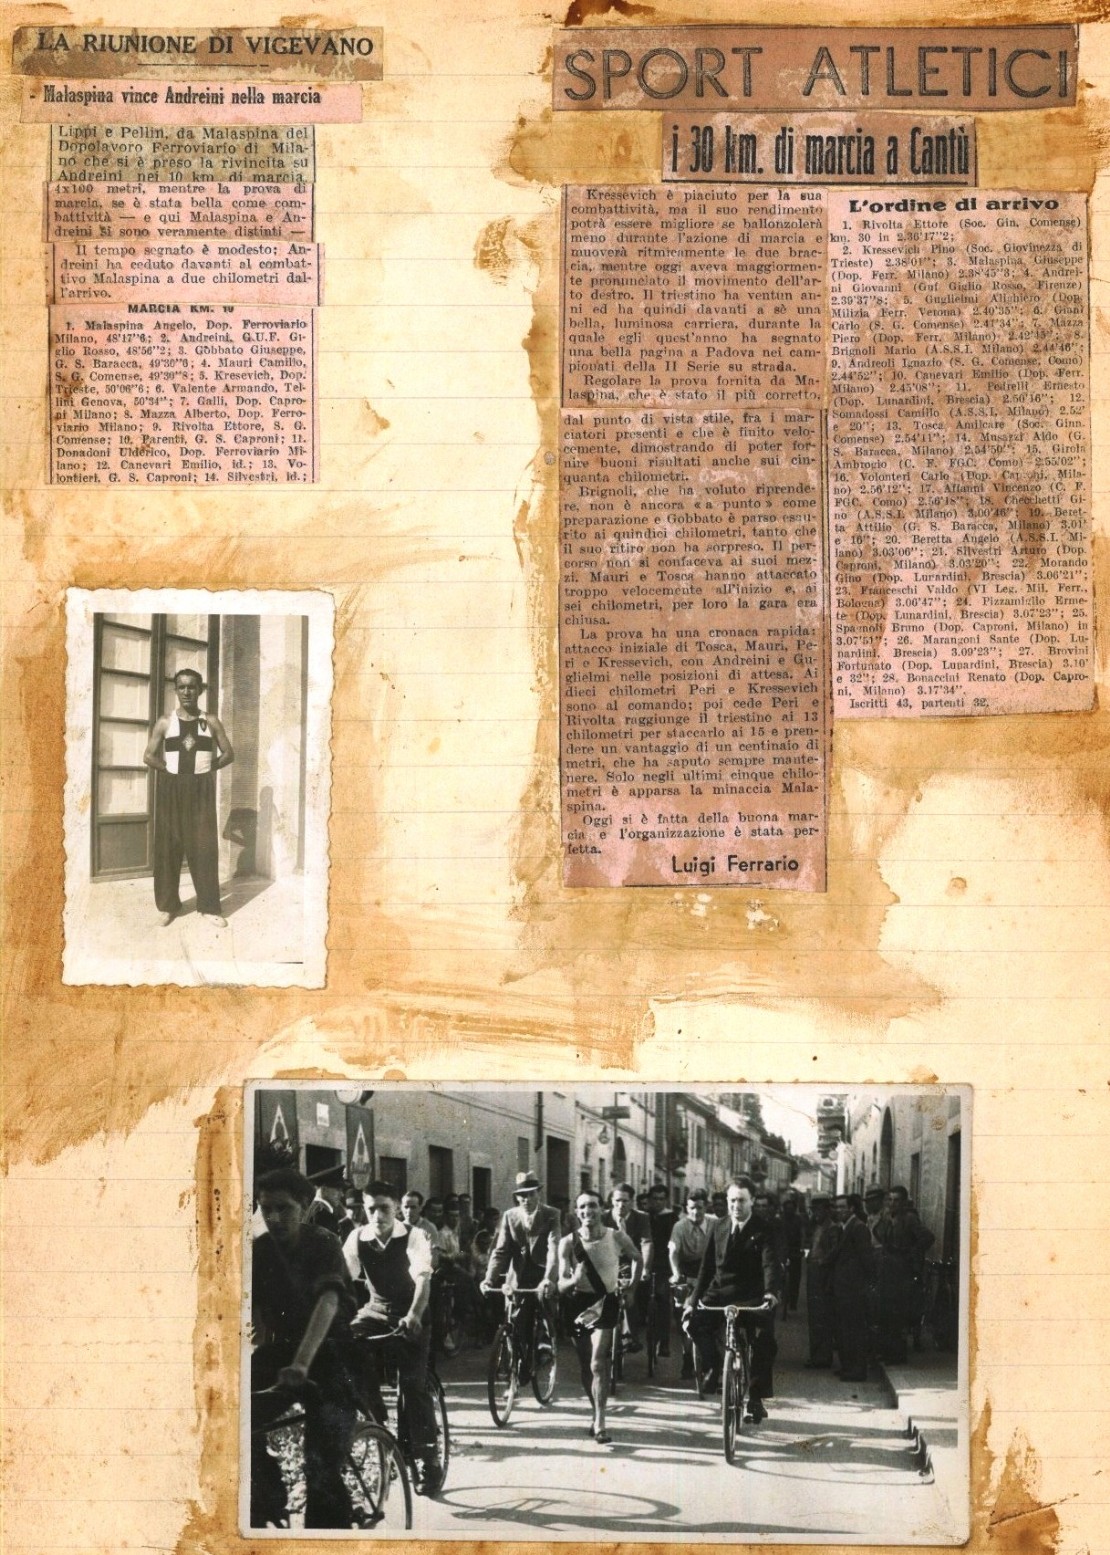 LA RIUNIONE DI VIGEVANO
- Malaspina vince Andreini nella marcia
Lippi e Pellin, da Malaspina del
Dopolavoro Ferroviario di Mila-
no che si è preso la rivincita su
Andreini nei 10 km di marcia,
4x100 metri, mentre la prova di
marcia, se è stata bella come com-
battività — e qui Malaspina e An-
dreini si sono veramente distinti —
Il tempo segnato è modesto; An-
dreini ha ceduto davanti al combat-
tivo Malaspina a due chilometri dal-
l'arrivo.
MARCIA KM. 10
1. Malaspina Angelo, Dop. Ferroviario
Milano, 48'17"6; 2. Andreini, G.U.F. Gi-
glio Rosso, 48'56"2; 3. Gobbato Giuseppe,
G. S. Baracca, 49'30"6; 4. Mauri Camillo,
S. G. Comense, 49'30"8; 5. Kresevich, Dop.
Trieste, 50'06"6; 6. Valente Armando, Tel-
lini Genova, 50'34"; 7. Galli, Dop. Capro-
ni Milano; 8. Mazza Alberto, Dop. Ferro-
viario Milano; 9. Rivolta Ettore, S. G.
Comense; 10. Parenti, G. S. Caproni; 11.
Donadoni Ulderico, Dop. Ferroviario Mi-
lano; 12. Canevari Emilio, id.; 13. Vo-
lontieri, G. S. Caproni; 14. Silvestri, id.;
SPORT ATLETICI
i 30 km. di marcia a Cantù
Kressevich è piaciuto per la sua
combattività, ma il suo rendimento
potrà essere migliore se ballonzolerà
meno durante l'azione di marcia e
muoverà ritmicamente le due brac-
cia, mentre oggi aveva maggiormen-
te pronunciato il movimento dell'ar-
to destro. Il triestino ha ventun an-
ni ed ha quindi davanti a sè una
bella, luminosa carriera, durante la
quale egli quest'anno ha segnato
una bella pagina a Padova nei cam-
pionati della II Serie su strada.
Regolare la prova fornita da Ma-
laspina, che è stato il più corretto,
dal punto di vista stile, fra i mar-
ciatori presenti e che è finito velo-
cemente, dimostrando di poter for-
nire buoni risultati anche sui cin-
quanta chilometri.
Brignoli, che ha voluto riprende-
re, non è ancora « a punto » come
preparazione e Gobbato è parso esau-
rito ai quindici chilometri, tanto che
il suo ritiro non ha sorpreso. Il per-
corso non si confaceva ai suoi mez-
zi. Mauri e Tosca hanno attaccato
troppo velocemente all'inizio e, ai
sei chilometri, per loro la gara era
chiusa.
La prova ha una cronaca rapida:
attacco iniziale di Tosca, Mauri, Pe-
ri e Kressevich, con Andreini e Gu-
glielmi nelle posizioni di attesa. Ai
dieci chilometri Peri e Kressevich
sono al comando; poi cede Peri e
Rivolta raggiunge il triestino ai 13
chilometri per staccarlo ai 15 e pren-
dere un vantaggio di un centinaio di
metri, che ha saputo sempre mante-
nere. Solo negli ultimi cinque chilo-
metri è apparsa la minaccia Mala-
spina.
Oggi si è fatta della buona mar-
cia e l'organizzazione è stata per-
fetta.
Luigi Ferrario
L'ordine di arrivo
1. Rivolta Ettore (Soc. Gin. Comense)
km. 30 in 2.36'17"2;
2. Kressevich Pino (Soc. Giovinezza di
Trieste) 2.38'01"; 3. Malaspina Giuseppe
(Dop. Ferr. Milano) 2.38'45"3; 4. Andrei-
ni Giovanni (Guf Giglio Rosso, Firenze)
2.39'37"8; 5. Guglielmi Alighiero (Dop.
Milizia Ferr. Verona) 2.40'35"; 6. Gioni
Carlo (S. G. Comense) 2.41'34"; 7. Mazza
Piero (Dop. Ferr. Milano) 2.42'15"; 8.
Brignoli Mario (A.S.S.I. Milano) 2.44'46";
9. Andreoli Ignazio (S. G. Comense, Como)
2.44'52"; 10. Canevari Emilio (Dop. Ferr.
Milano) 2.45'08"; 11. Pedrelli Ernesto
(Dop. Lunardini, Brescia) 2.50'16"; 12.
Somadossi Camillo (A.S.S.I. Milano) 2.52'
e 20"; 13. Tosca Amilcare (Soc. Ginn.
Comense) 2.54'11"; 14. Musazzi Aldo (G.
S. Baracca, Milano) 2.54'50"; 15. Girola
Ambrogio (C. F. FGC. Como) 2.55'02";
16. Volonteri Carlo (Dop. Caproni, Mila-
no) 2.56'12"; 17. Vincenzo (C. F.
FGC. Como) 2.56'18"; 18. Checchetti Gi-
no (A.S.S.I. Milano) 3.00'46"; 19. Beret-
ta Attilio (G. S. Baracca, Milano) 3.01'
e 16"; 20. Beretta Angelo (A.S.S.I. Mi-
lano) 3.03'06"; 21. Silvestri Arturo (Dop.
Caproni, Milano) 3.03'20"; 22. Morando
Gino (Dop. Lunardini, Brescia) 3.06'21";
23. Franceschi Valdo (VI Leg. Mil. Ferr.,
Bologna) 3.06'47"; 24. Pizzamiglio Erme-
te (Dop. Lunardini, Brescia) 3.07'23"; 25.
Spagnoli Bruno (Dop. Caproni, Milano) in
3.07'51"; 26. Marangoni Sante (Dop. Lu-
nardini, Brescia) 3.09'23"; 27. Brovini
Fortunato (Dop. Lunardini, Brescia) 3.10'
e 32"; 28. Bonaccini Renato (Dop. Capro-
ni, Milano) 3.17'34".
Iscritti 43, partenti 32.